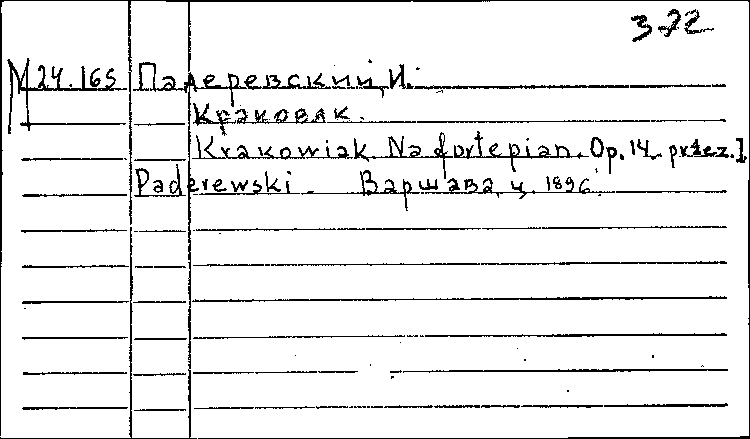 3-72
М 24.165 Падеревский, И.
Краковяк.
Krakowiak. Na fortepian. Op. 14. przez. I.
Paderewski. Варшава, ц. 1896.